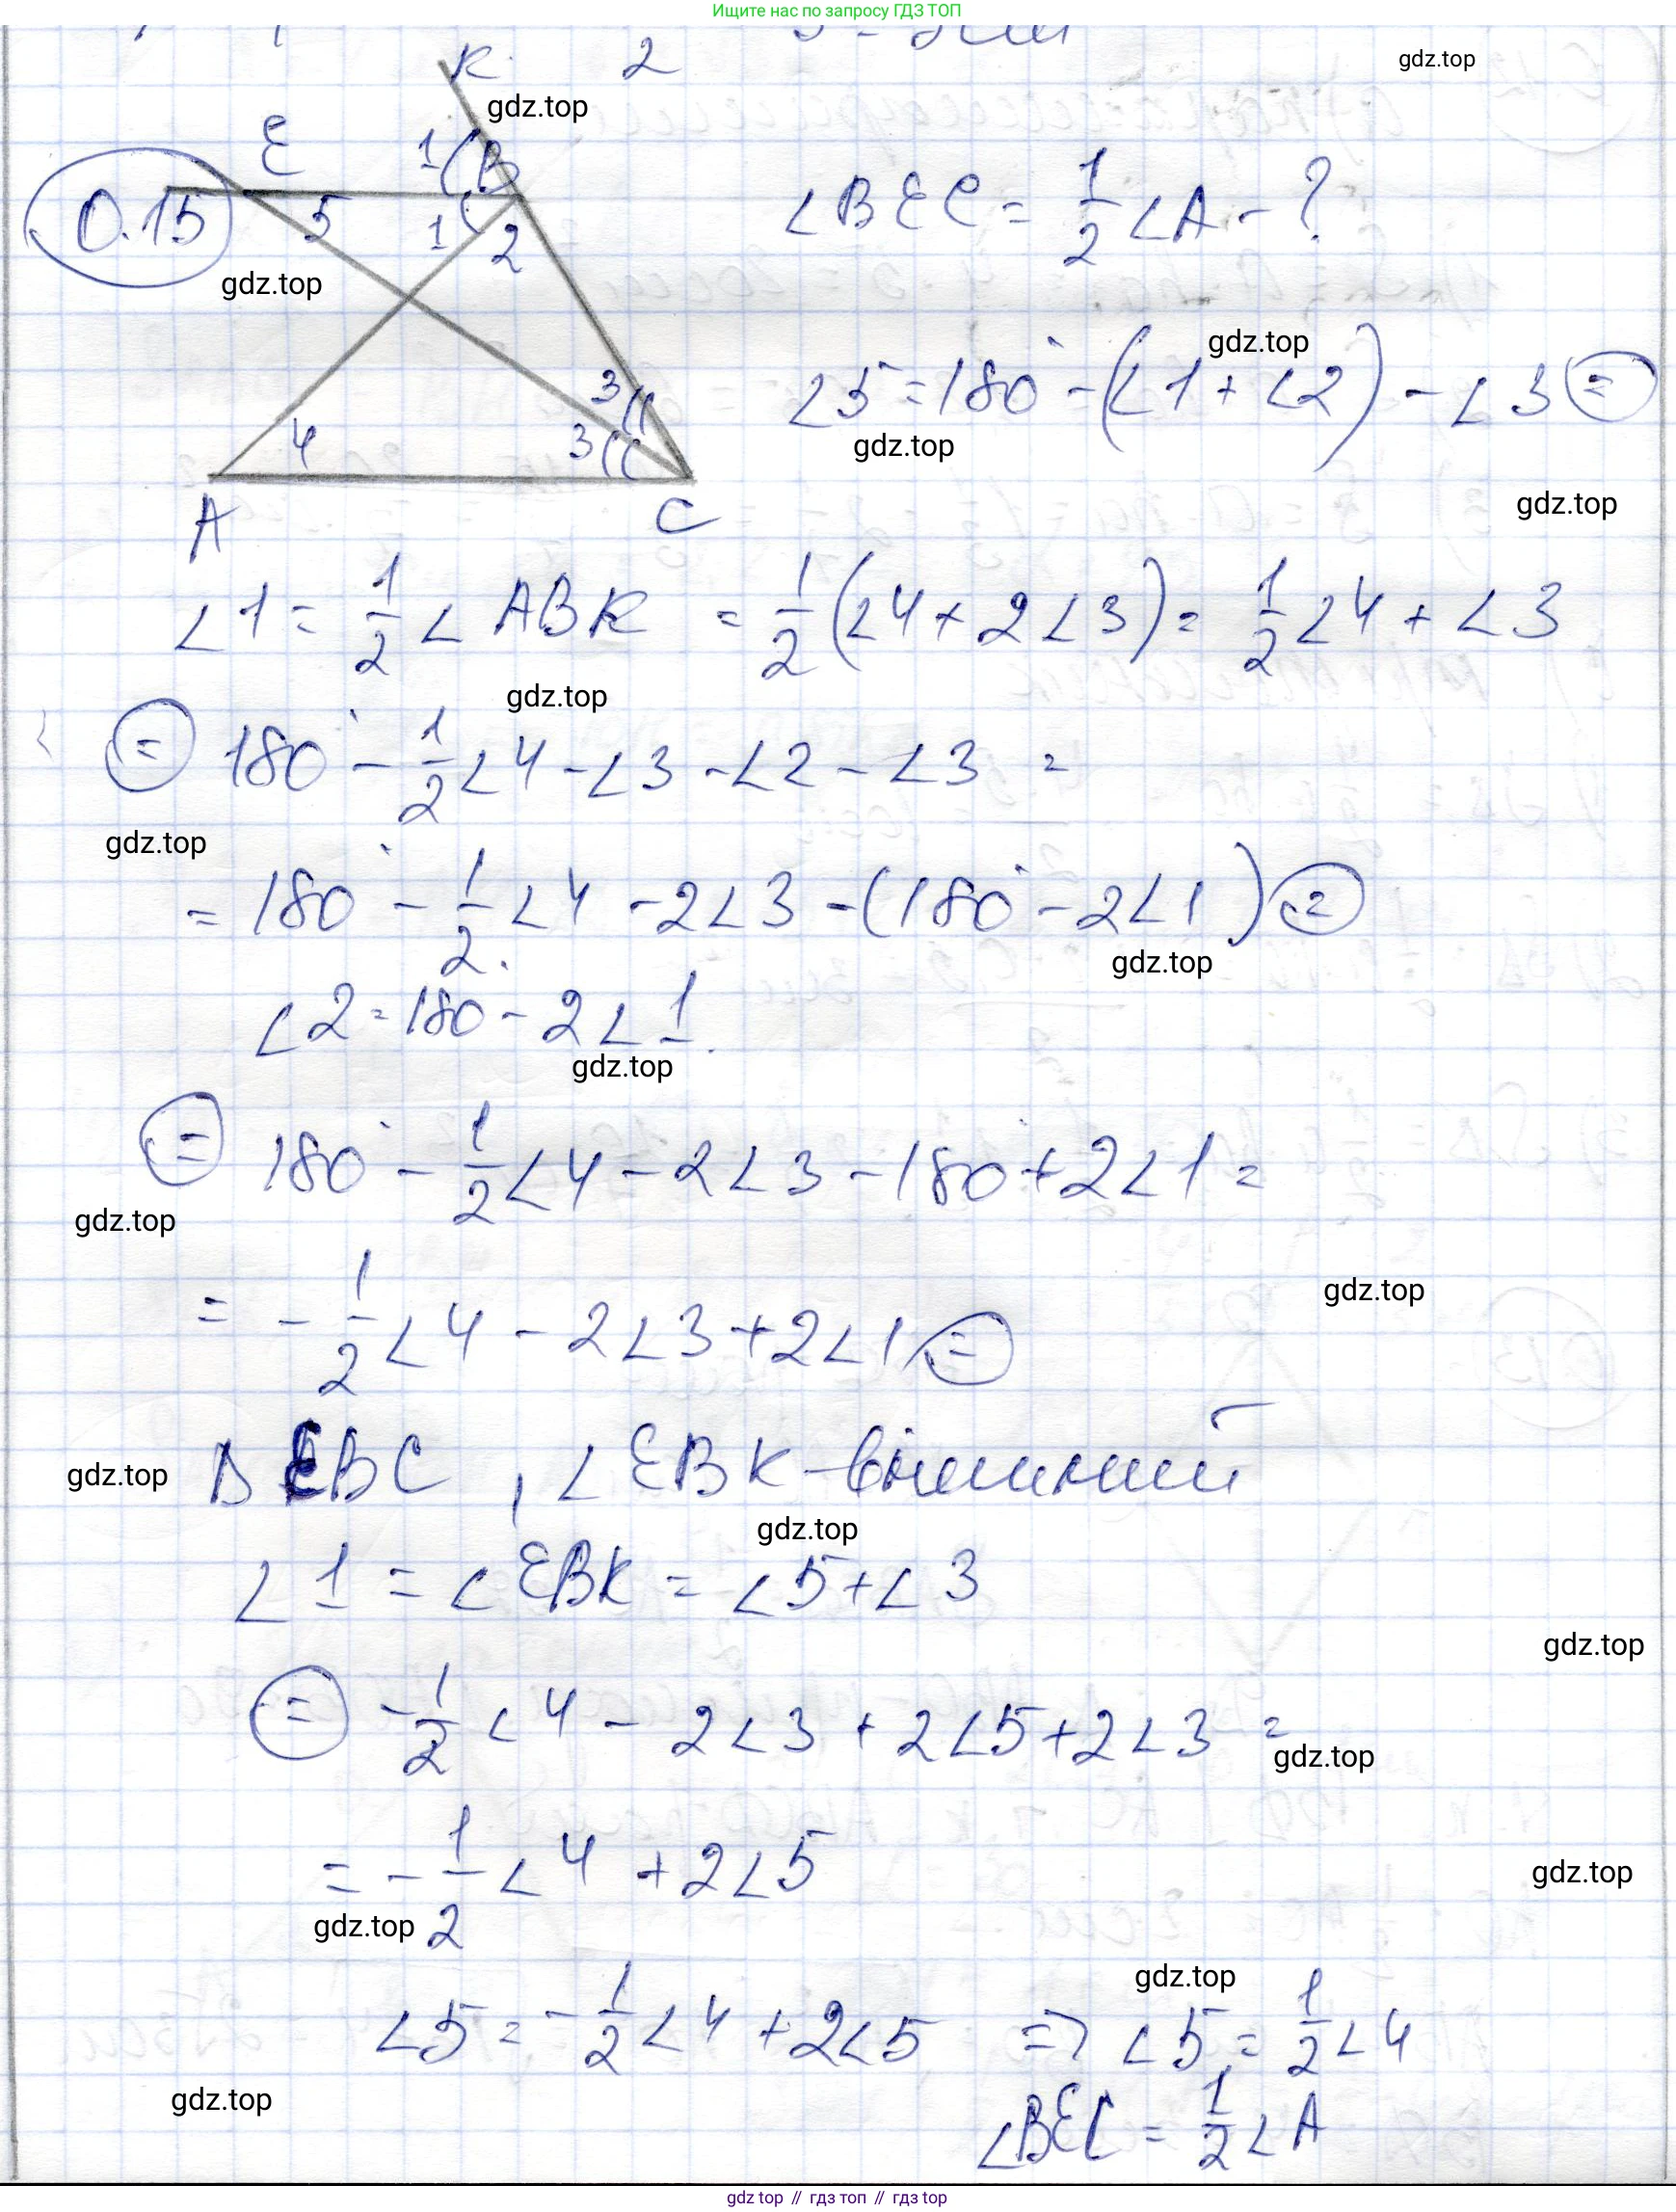 Ищите нас по запросу ГДЗ ТОП
K
2
gdz.top
gdz.top
E
1
B
0.15
5
1
2
∠BEC = 1/2 ∠A - ?
gdz.top
gdz.top
3
∠5 = 180° - (∠1 + ∠2) - ∠3 =
4
3
gdz.top
gdz.top
A
C
∠1 = 1/2 ∠ABK = 1/2 (∠4 + 2∠3) = 1/2 ∠4 + ∠3
gdz.top
= 180° - 1/2 ∠4 - ∠3 - ∠2 - ∠3 =
gdz.top
= 180° - 1/2 ∠4 - 2∠3 - (180° - 2∠1) =
gdz.top
∠2 = 180° - 2∠1.
gdz.top
= 180° - 1/2 ∠4 - 2∠3 - 180° + 2∠1 =
gdz.top
gdz.top
= - 1/2 ∠4 - 2∠3 + 2∠1 =
gdz.top
Δ EBC, ∠EBK - внешний
gdz.top
∠1 = ∠EBK = ∠5 + ∠3
gdz.top
= - 1/2 ∠4 - 2∠3 + 2∠5 + 2∠3 =
gdz.top
= - 1/2 ∠4 + 2∠5
gdz.top
gdz.top
gdz.top
∠5 = - 1/2 ∠4 + 2∠5 => ∠5 = 1/2 ∠4
gdz.top
∠BEC = 1/2 ∠A
gdz top // гдз топ // гдz top